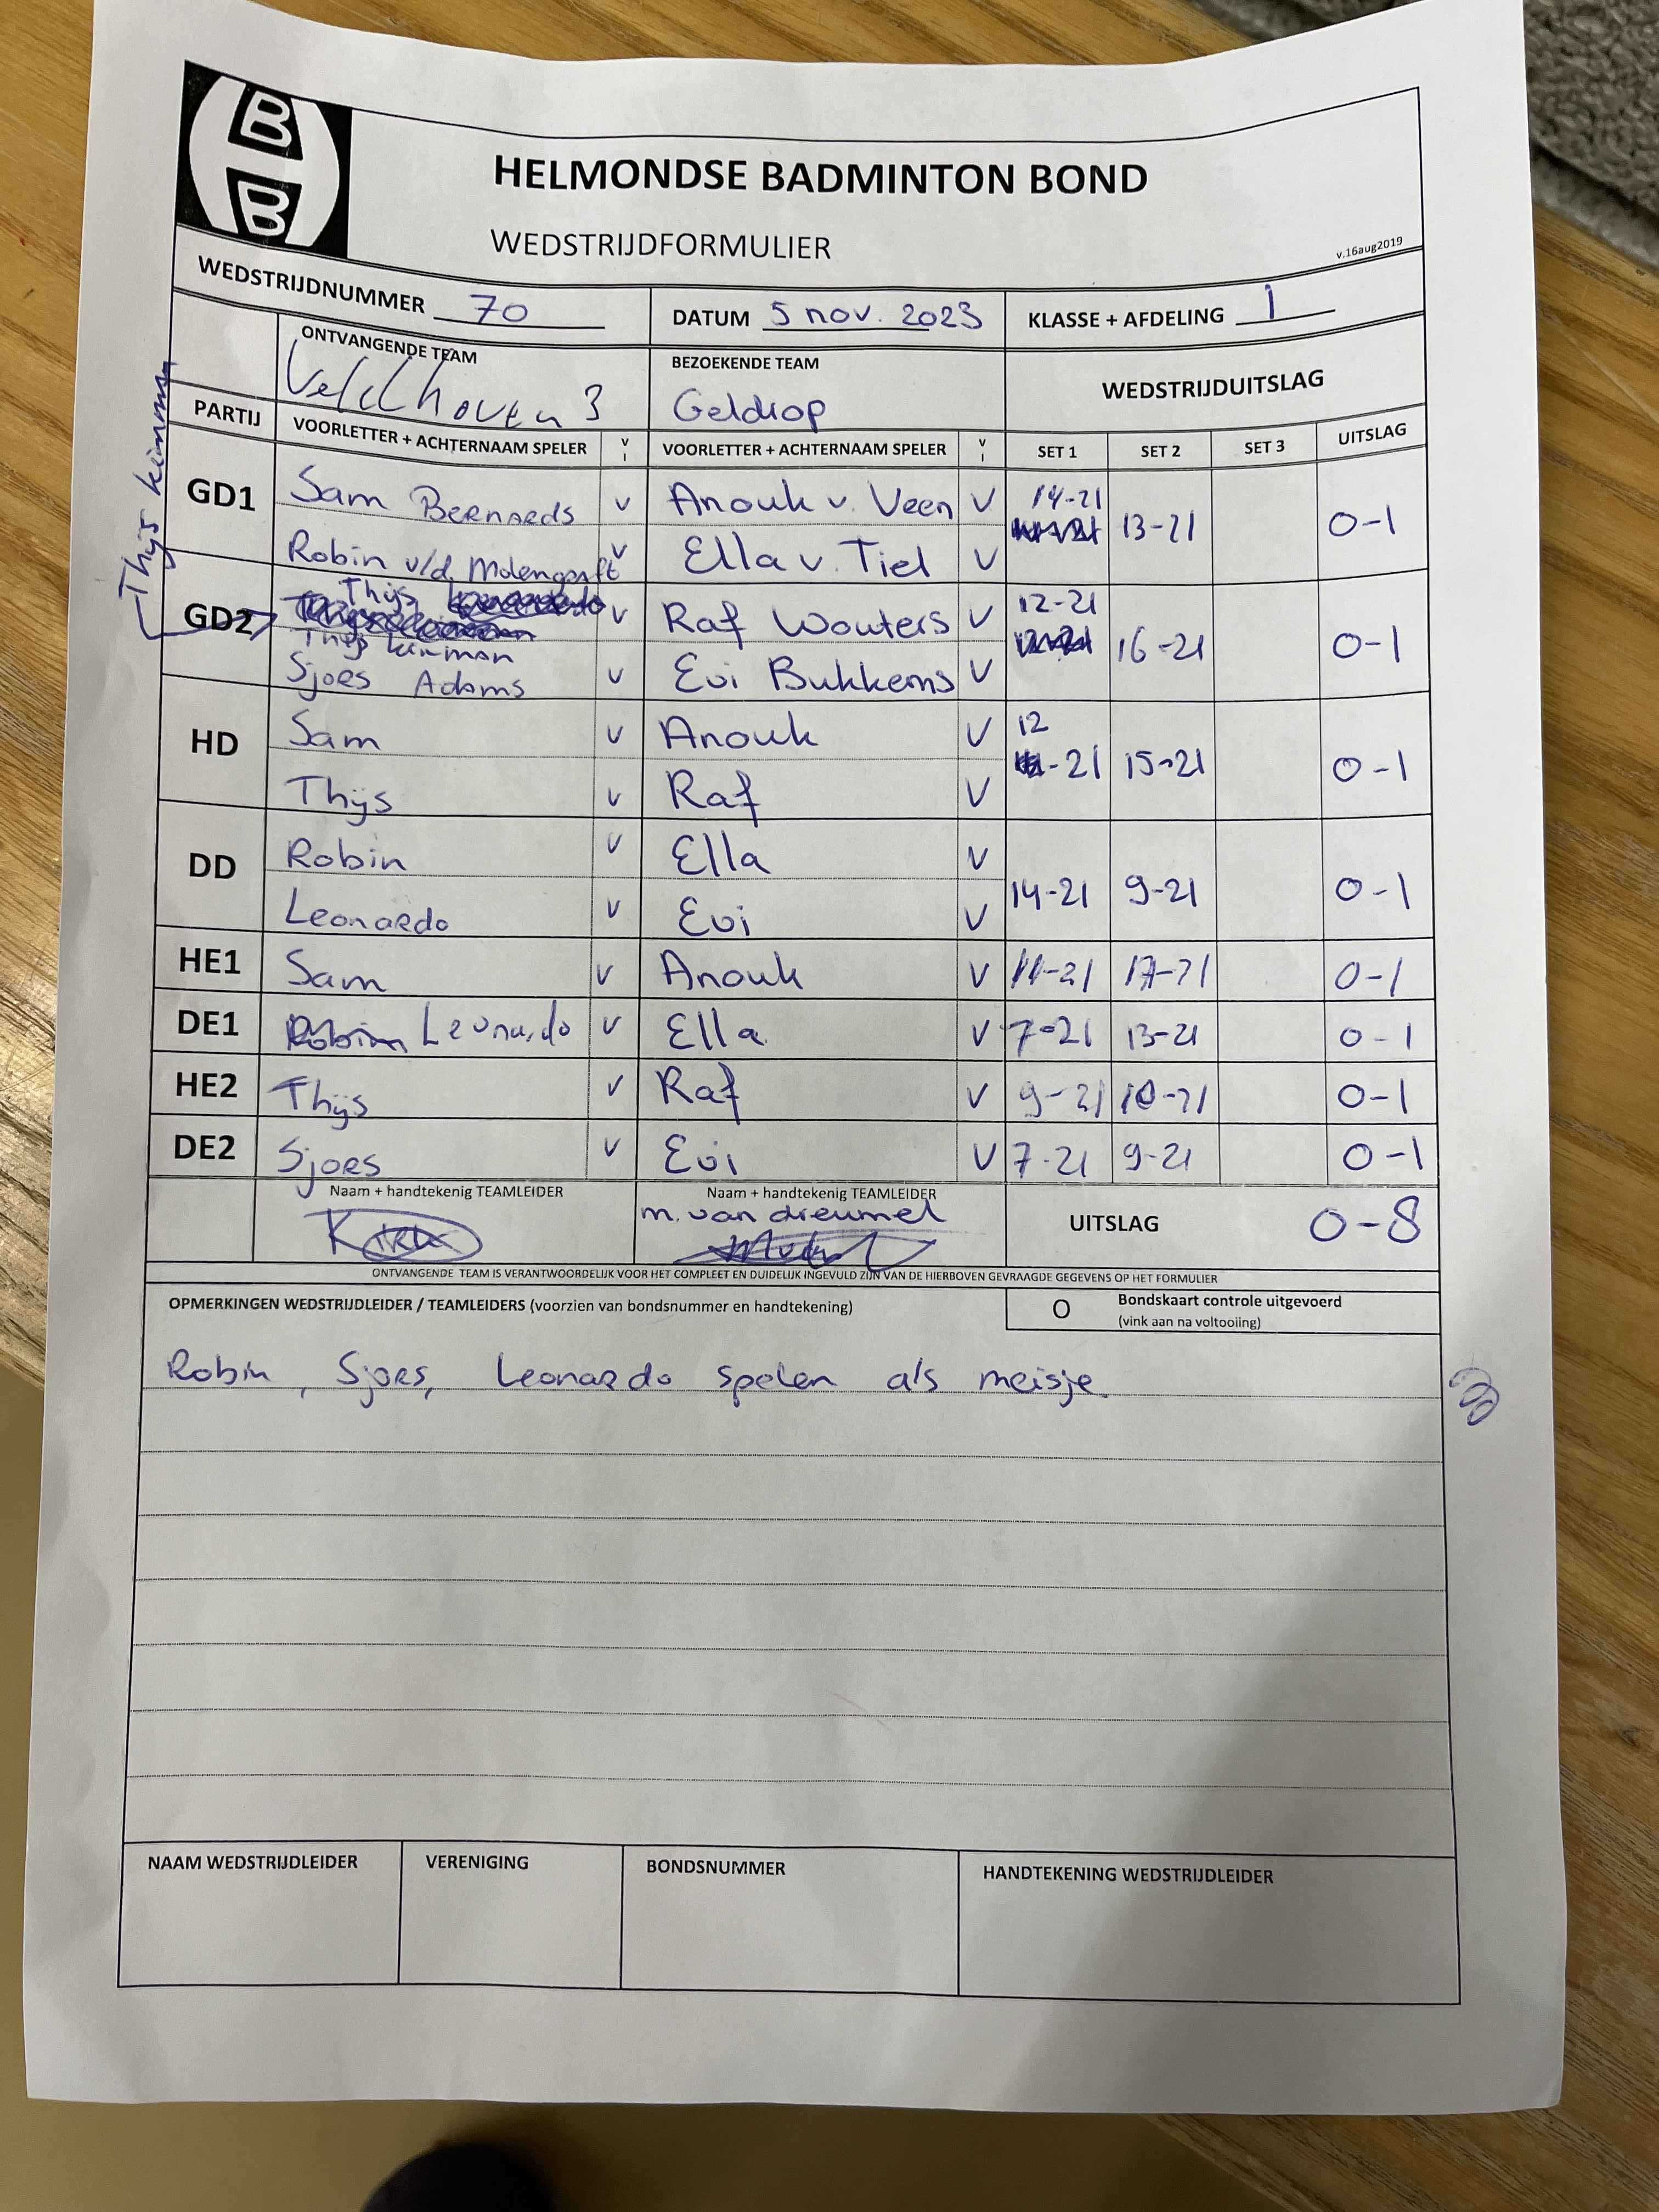 B
B
HELMONDSE BADMINTON BOND
WEDSTRIJDFORMULIER
v.16aug2019
WEDSTRIJDNUMMER 70 DATUM 5 nov. 2023 KLASSE + AFDELING 1
ONTVANGENDE TEAM BEZOEKENDE TEAM WEDSTRIJDUITSLAG
Veldhoven 3 Geldrop
PARTIJ VOORLETTER + ACHTERNAAM SPELER V I VOORLETTER + ACHTERNAAM SPELER V I SET 1 SET 2 SET 3 UITSLAG
GD1 Sam Bernards v Anouk v. Veen V 14-21 13-21 0-1
Robin v/d Molengraft v Ella v. Tiel V
Thijs kinman
GD2 Thijs v Raf Wouters V 12-21 16-21 0-1
Thijs kinman
Sjors Adams v Evi Bukkems V
HD Sam v Anouk V 12-21 15-21 0-1
Thijs v Raf V
DD Robin v Ella V 14-21 9-21 0-1
Leonardo v Evi V
HE1 Sam v Anouk V 11-21 17-21 0-1
DE1 Leonardo v Ella V 7-21 13-21 0-1
HE2 Thijs v Raf V 9-21 10-21 0-1
DE2 Sjors v Evi V 7-21 9-21 0-1
Naam + handtekenig TEAMLEIDER Naam + handtekenig TEAMLEIDER UITSLAG 0-8
m. van dreumel
ONTVANGENDE TEAM IS VERANTWOORDELIJK VOOR HET COMPLEET EN DUIDELIJK INGEVULD ZIJN VAN DE HIERBOVEN GEVRAAGDE GEGEVENS OP HET FORMULIER
OPMERKINGEN WEDSTRIJDLEIDER / TEAMLEIDERS (voorzien van bondsnummer en handtekening) O Bondskaart controle uitgevoerd
(vink aan na voltooiing)
Robin, Sjors, Leonardo spelen als meisje.
NAAM WEDSTRIJDLEIDER VERENIGING BONDSNUMMER HANDTEKENING WEDSTRIJDLEIDER